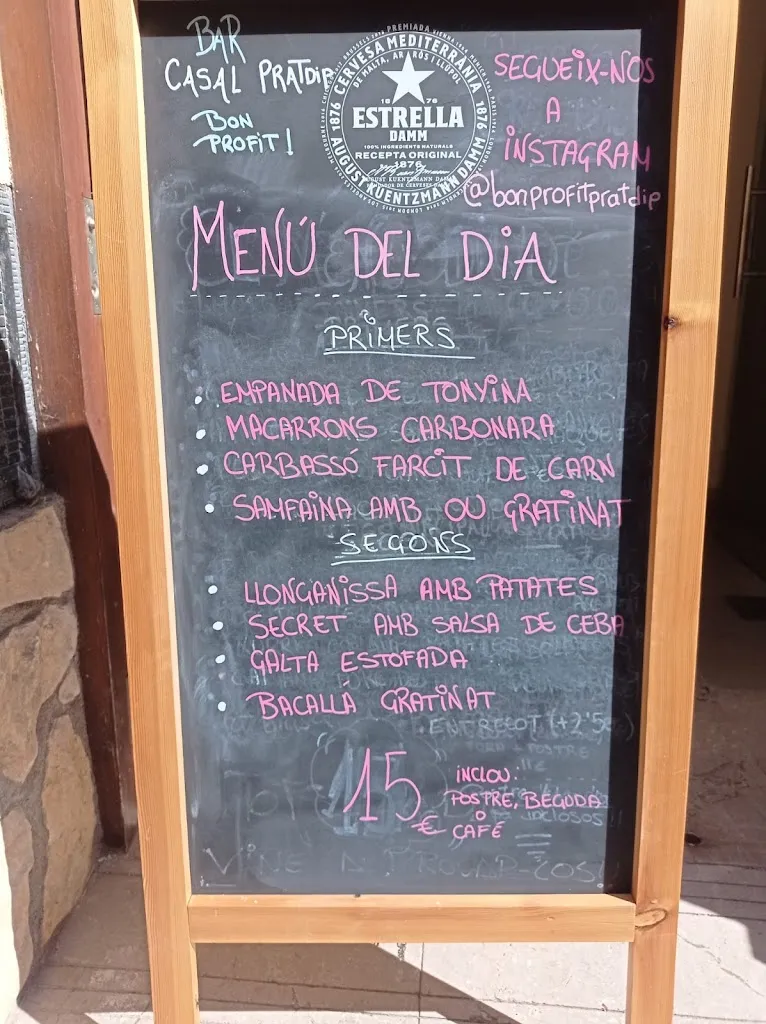 BAR
CASAL PRATDIP
BON
PROFIT!
CERVESA MEDITERRÀNIA
DE MALTA, ARRÒS I LLÚPOL
1876
ESTRELLA
DAMM
100% INGREDIENTS NATURALS
RECEPTA ORIGINAL
1876
AUGUST KUENTZMANN DAMM
1876 AUGUST KUENTZMANN DAMM 1876
SEGUEIX-NOS
A
INSTAGRAM
@bonprofitpratdip
MENÚ DEL DIA
PRIMERS
EMPANADA DE TONYINA
MACARRONS CARBONARA
CARBASSÓ FARCIT DE CARN
SAMFAINA AMB OU GRATINAT
SEGONS
LLONGANISSA AMB PATATES
SECRET AMB SALSA DE CEBA
GALTA ESTOFADA
BACALLÁ GRATINAT
ENTRECOT (+2'5€)
15€
INCLOU:
POSTRE, BEGUDA
O
CAFÉ